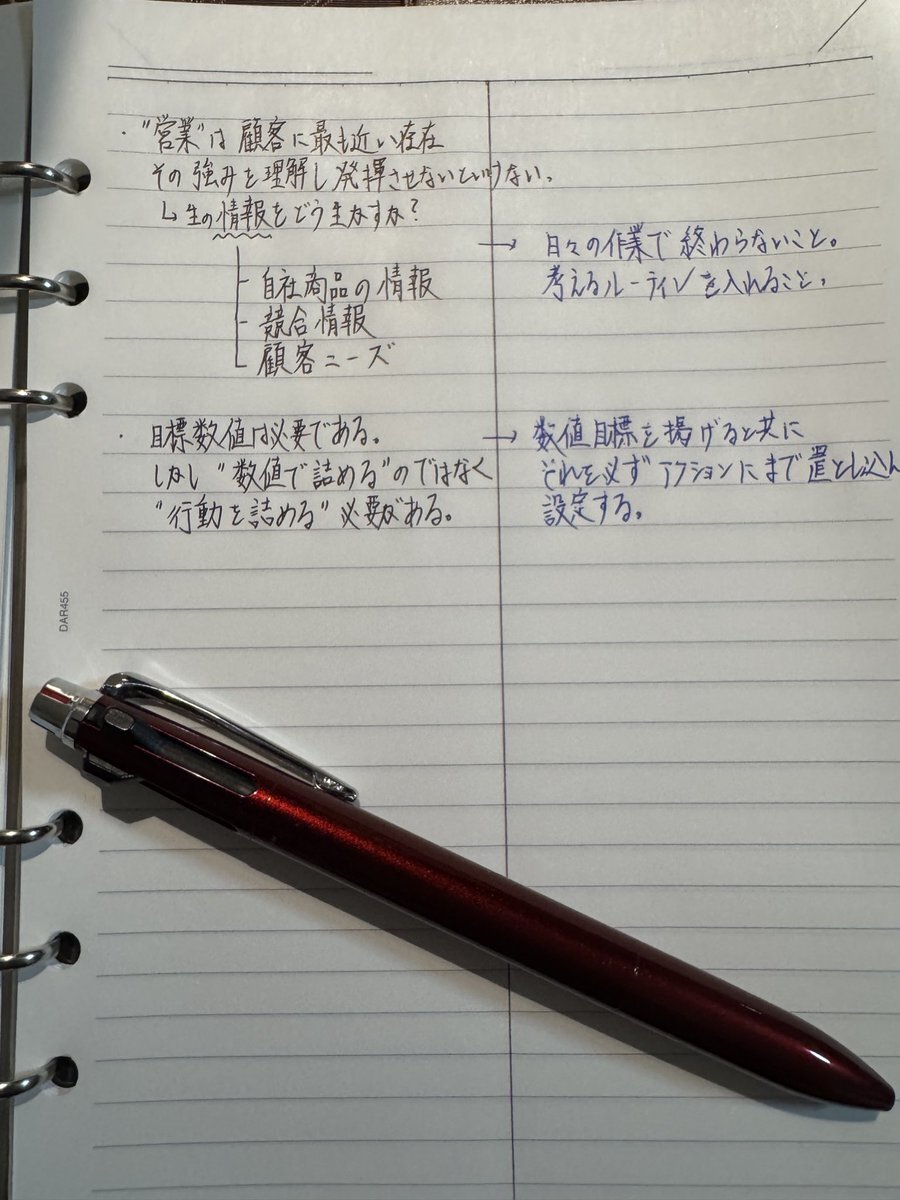 ・"営業"は顧客に最も近い存在
その強みを理解し発揮させないといけない。
↳生の情報をどう生かすか?
自社商品の情報
競合情報
顧客ニーズ
→ 日々の作業で終わらないこと。
考えるルーティンを入れること。
・目標数値は必要である。
しかし"数値で詰める"のではなく
"行動を詰める"必要がある。
→ 数値目標を掲げると共に
それを必ずアクションにまで置とし込ん
設定する。
DAR455